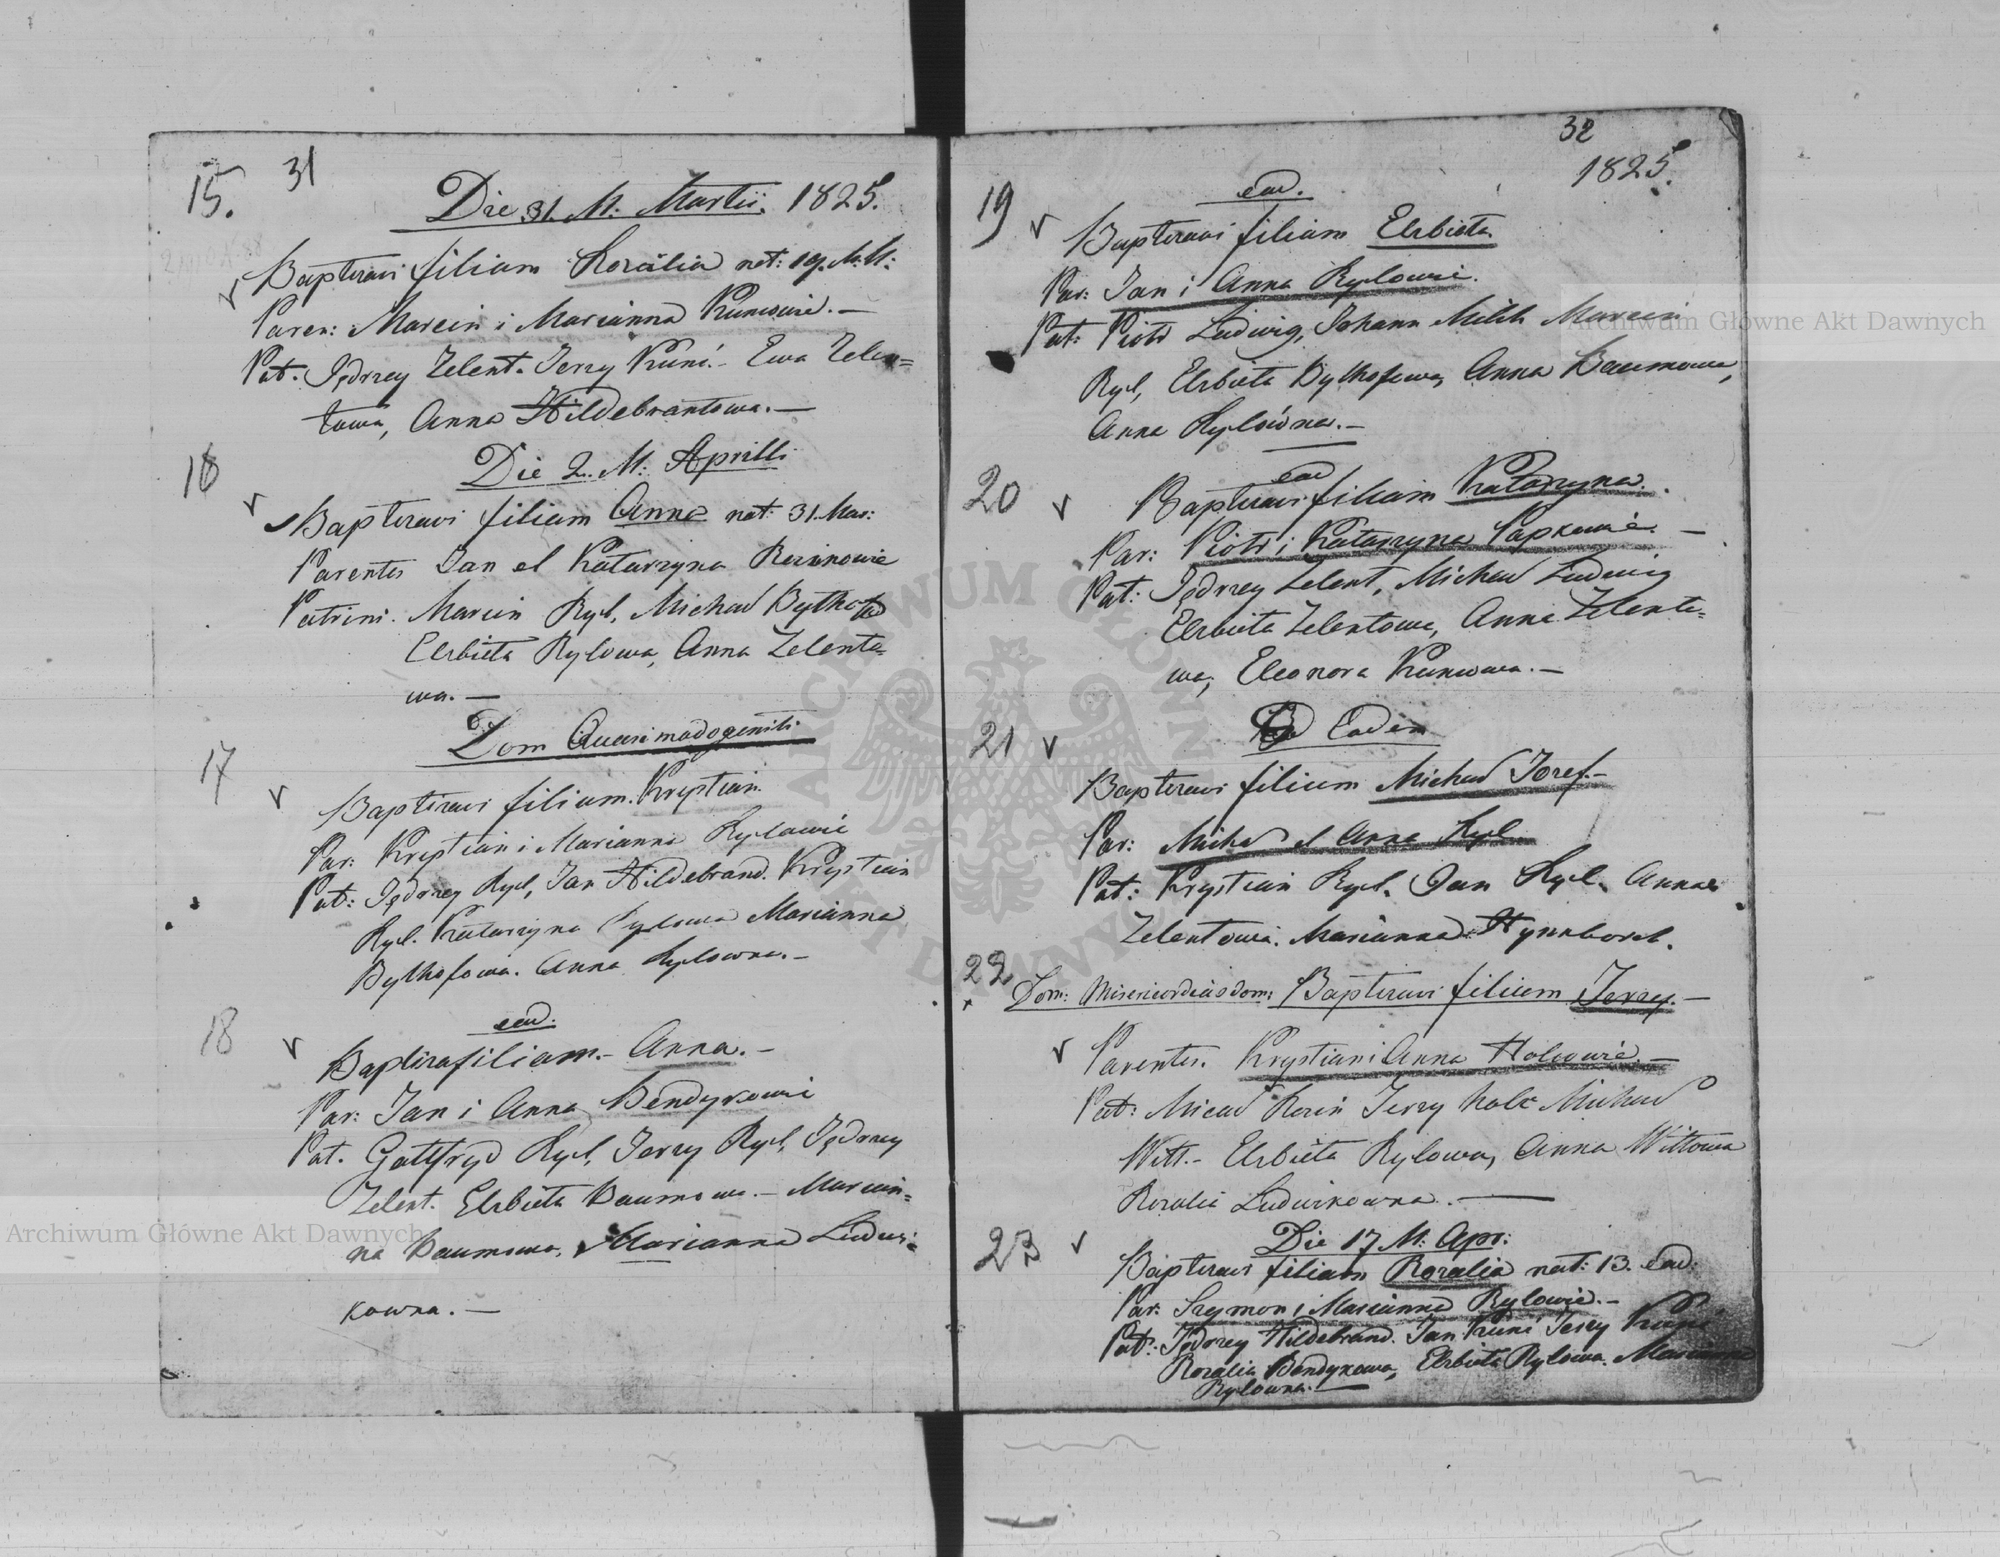 31
15.
Die 31. M. Martii. 1825.
Baptizavi filiam Rozalia nat: 19. M. M:
Paren: Marcin i Marianna Kuniowie. —
Pat. Jędrzey Zelent. Jerzy Kuni. - Ewa Zelen=
towa, Anna Hildebrantowa. —
16
Die 2. M. Aprill:
Baptizavi filiam Anna nat: 31. Mar:
Parentes Jan et Katarzyna Rezinowie
Patrini. Marcin Ryl, Michał
Elzbieta Rylowa, Anna Zelento=
wa. —
17
Dom Quasimodogeniti
Baptizavi filium. Krystian
Par: Krystian i Marianna Rylowie
Pat: Jędrzey Ryl, Jan Hildebrand. Krystian
Ryl. Katarzyna Rylowa Marianna
Bythofowa. Anna Rylowna. —
18
ead.
Baptiza filiam. - Anna. —
Par: Jan i Anna Bendykowie
Pat. Gottfryd Ryl, Jerzy Ryl, Jędrzey
Zelent. Elzbieta Baumowa. — Marian=
na Baumowa, Marianna Ludwi=
kowna. —
32
1825.
19
ead.
Baptizavi filiam Elzbieta
Par: Jan i Anna Rylowie.
Pat: Piotr Ludwig, Johann Milch Marcin
Ryl, Elzbieta Bythofowa, Anna Baumowa,
Anna Rylówna. —
20
ead
Baptizavi filiam Katarzyna.
Par: Piotr i Katarzyna Papkowie. —
Pat: Jędrzey Zelent, Michał Ludwig
Elzbieta Zelentowa, Anna Zelento=
wa, Eleonora Kuniowa. —
21
Eadem
Baptizavi filium Michał Jozef. —
Par: Michał et Anna Ryl
Pat: Krystian Ryl. Jan Ryl. Anna
Zelentowa. Marianna
22
Dom: Misericordias dom: Baptizavi filium Jerzy. —
Parentes. Krystian i Anna Holcowie. —
Pat: Micał Rezin Jerzy Holc Michał
Witt. - Elzbieta Rylowa, Anna Wittowa
Rozalia Ludwikowna. —
23
Die 17 M. Apr:
Baptizavi filiam Rozalia nat: 13. ead.
Par: Szymon i Marianna Rylowie. —
Pat: Jędrzey Hildebrand. Jan Kuni Jerzy
Rozalia Bendykowa, Elzbieta Rylowa. Marianna
Rylowna. —
Archiwum Główne Akt Dawnych
Archiwum Główne Akt Dawnych
ARCHIWUM GŁÓWNE AKT DAWNYCH